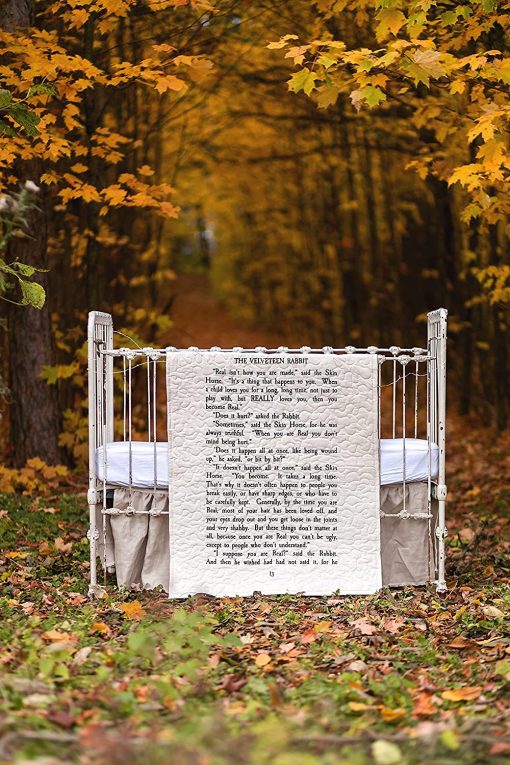 THE VELVETEEN RABBIT
"Real isn't how you are made," said the Skin
Horse. "It's a thing that happens to you. When
a child loves you for a long, long time, not just to
play with, but REALLY loves you, then you
become Real."
"Does it hurt?" asked the Rabbit.
"Sometimes," said the Skin Horse, for he was
always truthful. "When you are Real you don't
mind being hurt."
"Does it happen all at once, like being wound
up," he asked, "or bit by bit?"
"It doesn't happen all at once," said the Skin
Horse. "You become. It takes a long time.
That's why it doesn't often happen to people who
break easily, or have sharp edges, or who have to
be carefully kept. Generally, by the time you are
Real, most of your hair has been loved off, and
your eyes drop out and you get loose in the joints
and very shabby. But these things don't matter at
all, because once you are Real you can't be ugly,
except to people who don't understand."
"I suppose you are Real?" said the Rabbit.
And then he wished had had not said it, for he
13